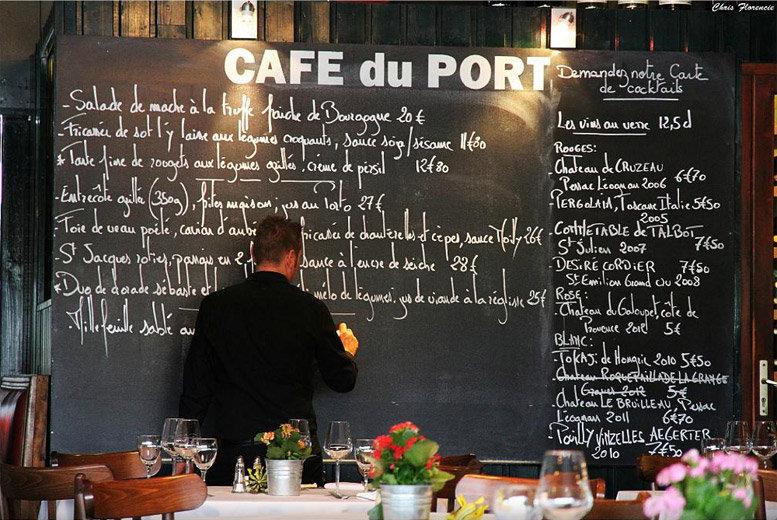 Chris Florencie
CAFE du PORT
- Salade de mache à la truffe fraiche de Bourgogne 20 €
- Fricassée de sot l'y laisse aux légumes croquants, sauce soja/sésame 11€80
* Tarte fine de rougets aux légumes grillés, crème de persil 12€80
- Entrecôte grillée (350g), frites maison, jus au 27 €
- Foie de veau poêlé, caviar d'auber fricassée de chanterelles et cèpes, sauce Noilly 26€
St Jacques roties, panais en 2 sauce à l'encre de seiche 28 €
* Duo de dorade sébaste et mélo de légumes, jus de viande à la réglisse 25€
Millefeuille sablé au
Demandez notre Carte
de cocktails
Les vins au verre 12,5 cl
ROUGES:
Chateau de CRUZEAU
Pessac Léognan 2006 6€70
PERGOLAIA, Toscane Italie 5€50
2005
CONNETABLE de TALBOT
St Julien 2007 7€50
DESIRE CORDIER 7€50
St Emilion Grand cru 2008
ROSE:
Chateau du Galoupet, côte de
Provence 2012 5€
BLANC:
TOKAJI de Hongrie 2010 5€50
Chateau ROQUETAILLADE LA GRANGE
Graves 2012 5€
Chateau LE BRUILLEAU, Pessac
Léognan 2011 6€70
Pouilly VINZELLES AEGERTER
2010 7€50